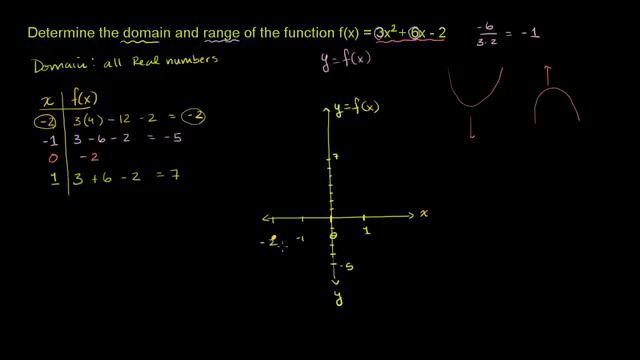 Determine the domain and range of the function f(x) = 3x² + 6x - 2
-6 / 3·2 = -1
Domain: all Real numbers
y = f(x)
x f(x)
-2 3(4) - 12 - 2 = -2
-1 3 - 6 - 2 = -5
0 -2
1 3 + 6 - 2 = 7
y = f(x)
7
x
-2 -1 0 1
-5
y